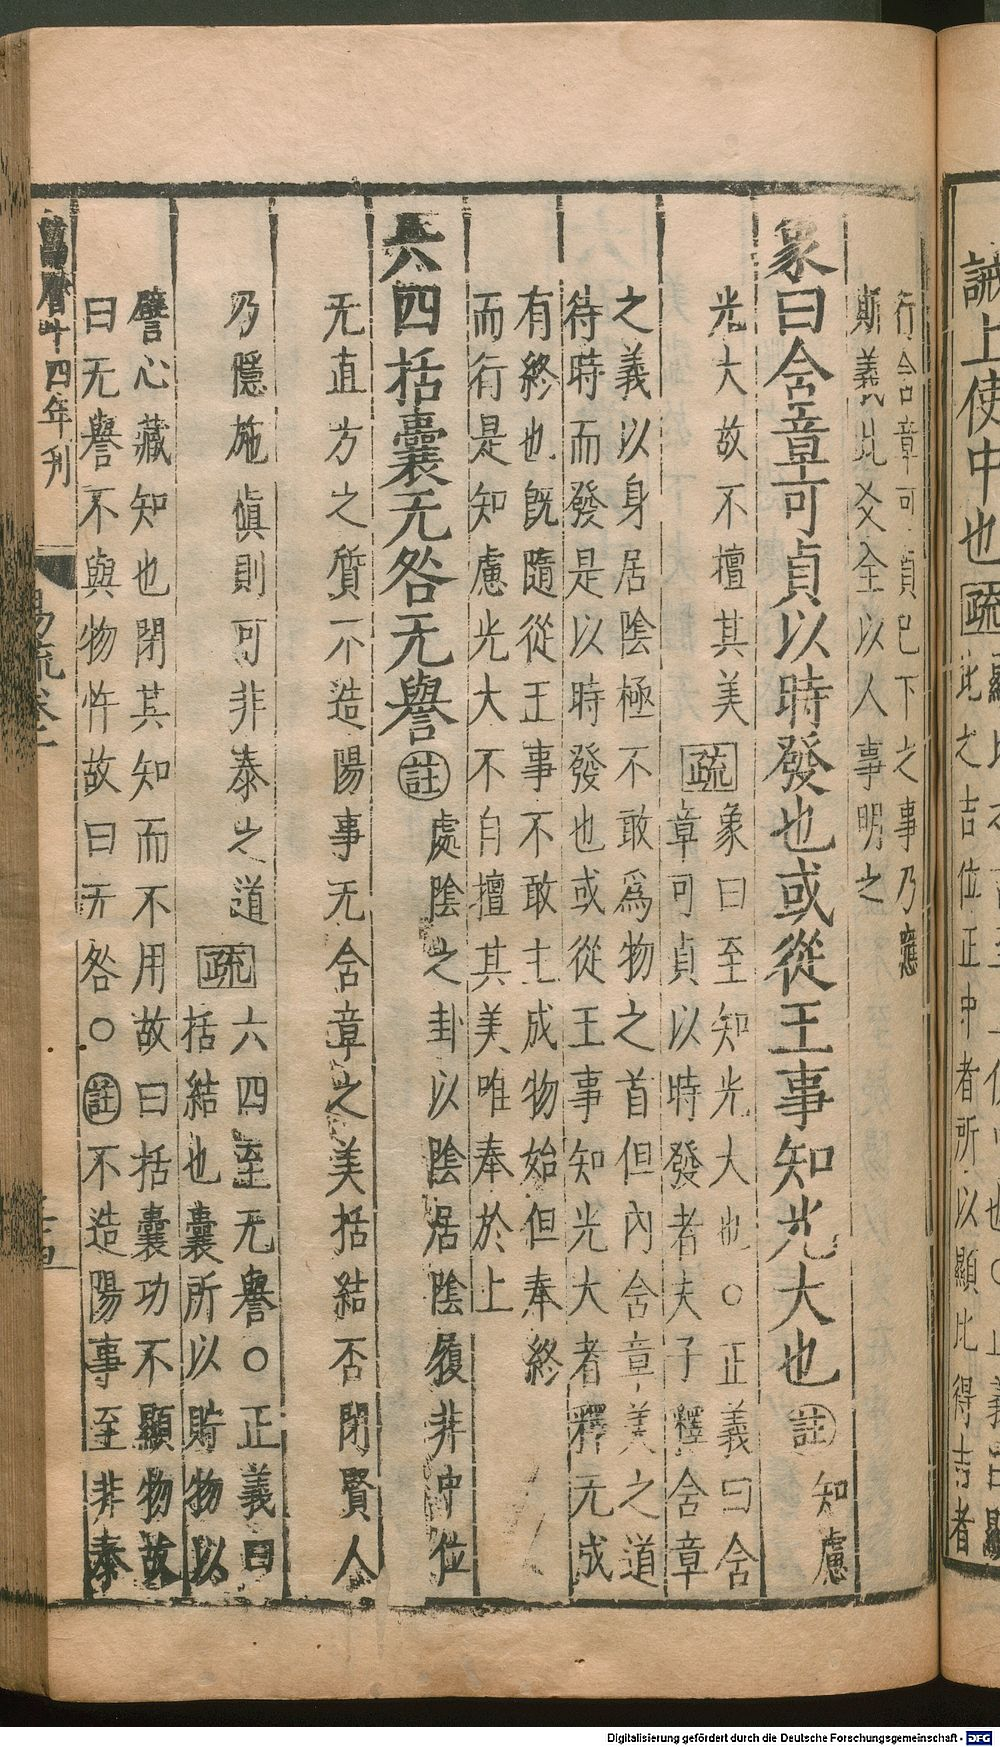 行含章可貞已下之事乃應
斯義此爻全以人事明之
象曰含章可貞以時發也或從王事知光大也 註 知慮
光大故不擅其美 疏 象曰至知光大也○正義曰含
章可貞以時發者夫子釋含章
之義以身居陰極不敢爲物之首但內含章美之道
待時而發是以時發也或從王事知光大者釋无成
有終也旣隨從王事不敢主成物始但奉終
而行是知慮光大不自擅其美唯奉於上
六四括囊无咎无譽 註 處陰之卦以陰居陰履非中位
无直方之質不造陽事无含章之美括結否閉賢人
乃隱施愼則可非泰之道 疏 六四至无譽○正義曰
括結也囊所以貯物以
譬心藏知也閉其知而不用故曰括囊功不顯物故
曰无譽不與物忤故曰无咎○註不造陽事至非泰
萬曆十四年刊
易疏卷一
誡上使中也 疏
此之吉位正中者所以顯比得吉者
Digitalisierung gefördert durch die Deutsche Forschungsgemeinschaft - DFG